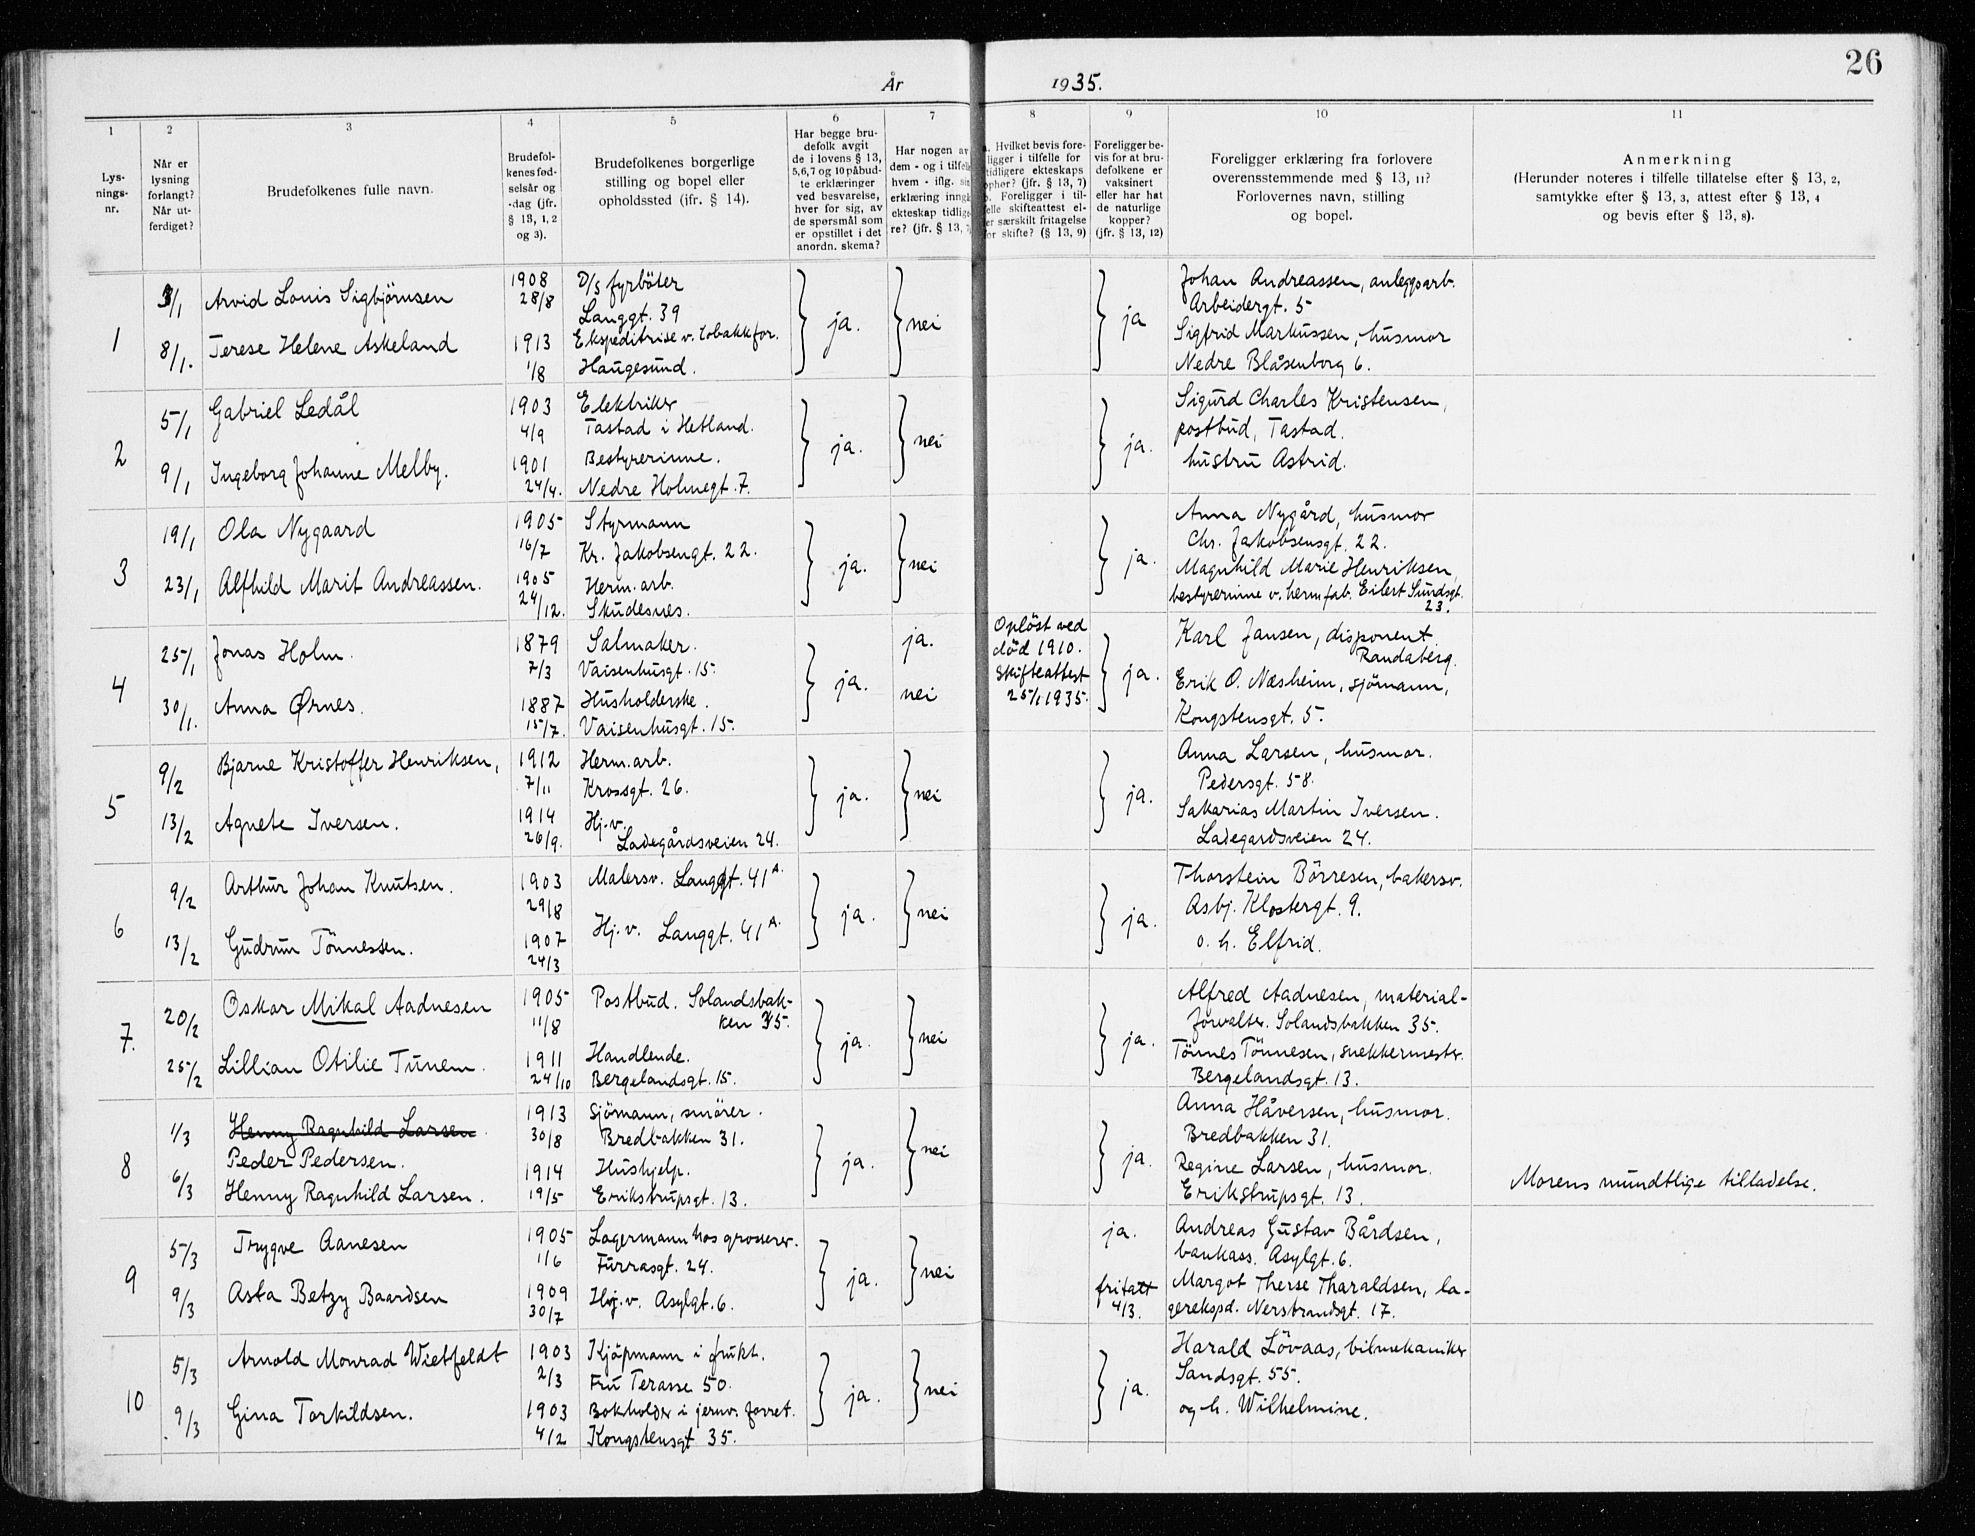 26
År 1935.
1 2 3 4 5 6 7 8 9 10 11
Lys-
nings-
nr.
Når er
lysning
forlangt?
Når ut-
ferdiget?
Brudefolkenes fulle navn.
Brudefol-
kenes fød-
selsår og
-dag (jfr.
§ 13, 1, 2
og 3).
Brudefolkenes borgerlige
stilling og bopel eller
opholdssted (jfr. § 14).
Har begge bru-
defolk avgit
de i lovens § 13,
5,6,7 og 10 påbud-
te erklæringer
ved besvarelse,
hver for sig, av
de spørsmål som
er opstillet i det
anordn. skema?
Har nogen av
dem - og i tilfelle
hvem - iflg. sin
erklæring inngå
ekteskap tidlige-
re? (jfr. § 13, 7
a. Hvilket bevis fore-
ligger i tilfelle for
tidligere ekteskaps
ophør? (jfr. § 13, 7)
b. Foreligger i til-
felle skifteattest el-
ler særskilt fritagelse
for skifte? (§ 13, 9)
Foreligger be-
vis for at bru-
defolkene er
vaksinert
eller har hat
de naturlige
kopper?
(jfr. § 13, 12)
Foreligger erklæring fra forlovere
overensstemmende med § 13, 11?
Forlovernes navn, stilling
og bopel.
Anmerkning
(Herunder noteres i tilfelle tillatelse efter § 13, 2,
samtykke efter § 13, 3, attest efter § 13, 4
og bevis efter § 13, 8).
1
3/1 Arvid Louis Sigbjörnsen 1908 28/8 D/S fyrböter
Langgt. 39
8/1. Terese Helene Askeland 1913 1/8 Ekspeditrise v. tobakkfor.
Haugesund.
ja. nei ja
Johan Andreassen, anleggsarb.
Arbeidergt. 5
Sigfrid Markussen, husmor
Nedre Blåsenborg 6.
2
5/1 Gabriel Ledål 1903 4/9 Elektriker
Tastad i Hetland.
9/1 Ingeborg Johanne Melby. 1901 24/4. Bestyrerinne.
Nedre Holmegt. 7.
ja. nei ja.
Sigurd Charles Kristensen,
postbud, Tastad.
hustru Astrid.
3
19/1 Ola Nygaard 1905 16/7 Styrmann
Kr. Jakobsengt. 22.
23/1 Alfhild Marit Andreassen. 1905 24/12. Herm. arb.
Skudesnes.
ja. nei ja.
Anna Nygård, husmor
Chr. Jakobsensgt. 22.
Magnhild Marie Henriksen,
bestyrerinne v. hermfab. Eilert Sundsgt.
23.
4
25/1 Jonas Holm. 1879 7/3 Salmaker.
Vaisenhusgt. 15.
30/1. Anna Ørnes. 1887 15/7. Husholderske.
Vaisenhusgt. 15.
ja. ja. nei
Oplöst ved
död 1910.
Skifteattest
25/1 1935.
ja.
Karl Jansen, disponent
Randaberg.
Erik O. Næsheim, sjömann,
Kongstensgt. 5.
5
9/2 Bjarne Kristoffer Henriksen, 1912 7/11 Herm. arb.
Krossgt. 26.
13/2 Agnete Iversen. 1914 26/9. Hj. v.
Ladegårdsveien 24.
ja. nei ja.
Anna Larsen, husmor.
Pedersgt. 58.
Sakarias Martin Iversen.
Ladegardsveien 24.
6
9/2 Arthur Johan Knutsen. 1903 29/8 Malersv. Langgt. 41 A.
13/2 Gudrun Tönnessen. 1907 24/3 Hj. v. Langgt. 41 A.
ja. nei ja.
Thorstein Börresen, bakersv.
Asbj. Klostergt. 9.
o. h. Elfrid.
7.
20/2 Oskar Mikal Aadnesen 1905 11/8 Postbud. Solandsbak-
ken 35.
25/2 Lillian Otilie Tunem. 1911 24/10 Handlende.
Bergelandsgt. 15.
ja. nei ja.
Alfred Aadnesen, material-
forvalter. Solandsbakken 35.
Tönnes Tönnesen, snekkermester.
Bergelandsgt. 13.
8
1/3 Henny Ragnhild Larsen.
Peder Pedersen. 1913 30/8 Sjömann, smörer.
Bredbakken 31.
6/3 Henny Ragnhild Larsen. 1914 19/5 Hushjelp.
Erikstrupsgt. 13.
ja. nei ja.
Anna Håversen, husmor.
Bredbakken 31.
Regine Larsen, husmor.
Erikstrupsgt. 13.
Morens mundtlige tilladelse.
9
5/3 Trygve Aanesen 1905 1/6 Lagermann hos grosserer.
Furrasgt. 24.
9/3 Asta Betzy Baardsen 1909 30/7 Hj. v. Asylgt. 6.
ja. nei ja.
fritatt
4/3.
Andreas Gustav Bårdsen,
bankass. Asylgt. 6.
Margot Therse Tharaldsen, la-
gerekspd. Nerstrandsgt. 17.
10
5/3 Arnold Monrad Wietfeldt 1903 2/3 Kjöpmann i frukt.
Fru Terasse 50.
9/3 Gina Torkildsen. 1903 4/2 Bokholder i jernv. forret.
Kongstensgt 35.
ja. nei ja.
Harald Lövaas, bilmekaniker
Sandsgt. 55.
og h. Wilhelmine.